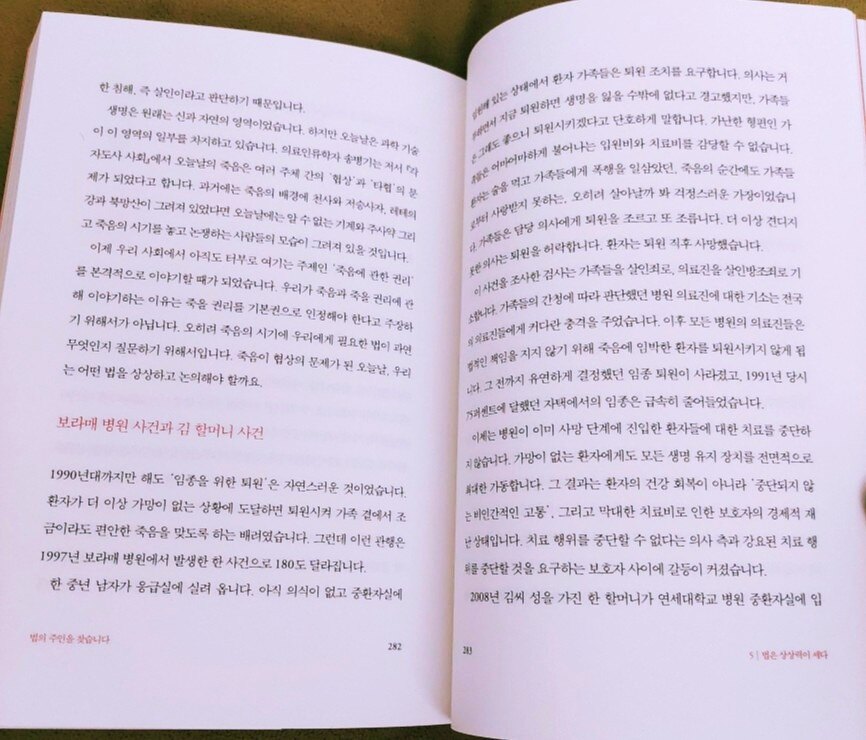 한 침해, 즉 살인이라고 판단하기 때문입니다.
생명은 원래는 신과 자연의 영역이었습니다. 하지만 오늘날은 과학 기술
이 이 영역의 일부를 차지하고 있습니다. 의료인류학자 송병기는 저서 『각
자도사 사회』에서 오늘날의 죽음은 여러 주체 간의 ‘협상’과 ‘타협’의 문
제가 되었다고 합니다. 과거에는 죽음의 배경에 천사와 저승사자, 레테의
강과 북망산이 그려져 있었다면 오늘날에는 알 수 없는 기계와 주사약 그리
고 죽음의 시기를 놓고 논쟁하는 사람들의 모습이 그려져 있을 것입니다.
이제 우리 사회에서 아직도 터부로 여기는 주제인 ‘죽음에 관한 권리’
를 본격적으로 이야기할 때가 되었습니다. 우리가 죽음과 죽을 권리에 관
해 이야기하는 이유는 죽을 권리를 기본권으로 인정해야 한다고 주장하
기 위해서가 아닙니다. 오히려 죽음의 시기에 우리에게 필요한 법이 과연
무엇인지 질문하기 위해서입니다. 죽음이 협상의 문제가 된 오늘날, 우리
는 어떤 법을 상상하고 논의해야 할까요.
보라매 병원 사건과 김 할머니 사건
1990년대까지만 해도 ‘임종을 위한 퇴원’은 자연스러운 것이었습니다.
환자가 더 이상 가망이 없는 상황에 도달하면 퇴원시켜 가족 곁에서 조
금이라도 편안한 죽음을 맞도록 하는 배려였습니다. 그런데 이런 관행은
1997년 보라매 병원에서 발생한 한 사건으로 180도 달라집니다.
한 중년 남자가 응급실에 실려 옵니다. 아직 의식이 없고 중환자실에
법의 주인을 찾습니다
282
입원해 있는 상태에서 환자 가족들은 퇴원 조치를 요구합니다. 의사는 거
부하면서 지금 퇴원하면 생명을 잃을 수밖에 없다고 경고했지만, 가족들
은 그래도 좋으니 퇴원시키겠다고 단호하게 말합니다. 가난한 형편인 가
족들은 어마어마하게 불어나는 입원비와 치료비를 감당할 수 없습니다.
환자는 술을 먹고 가족들에게 폭행을 일삼았던, 죽음의 순간에도 가족으
로부터 사랑받지 못하는, 오히려 살아날까 봐 걱정스러운 가장이었습니
다. 가족들은 담당 의사에게 퇴원을 조르고 또 조릅니다. 더 이상 견디지
못한 의사는 퇴원을 허락합니다. 환자는 퇴원 직후 사망했습니다.
이 사건을 조사한 검사는 가족들을 살인죄로, 의료진을 살인방조죄로 기
소합니다. 가족들의 간청에 따라 판단했던 병원 의료진에 대한 기소는 전국
의 의료진들에게 커다란 충격을 주었습니다. 이후 모든 병원의 의료진들은
법적인 책임을 지지 않기 위해 죽음에 임박한 환자를 퇴원시키지 않게 됩
니다. 그 전까지 유연하게 결정했던 임종 퇴원이 사라졌고, 1991년 당시
75퍼센트에 달했던 자택에서의 임종은 급속히 줄어들었습니다.
이제는 병원이 이미 사망 단계에 진입한 환자들에 대한 치료를 중단하
지 않습니다. 가망이 없는 환자에게도 모든 생명 유지 장치를 전면적으로
최대한 가동합니다. 그 결과는 환자의 건강 회복이 아니라 ‘중단되지 않
는 비인간적인 고통’, 그리고 막대한 치료비로 인한 보호자의 경제적 재
난 상태입니다. 치료 행위를 중단할 수 없다는 의사 측과 강요된 치료 행
위를 중단할 것을 요구하는 보호자 사이에 갈등이 커졌습니다.
2008년 김씨 성을 가진 한 할머니가 연세대학교 병원 중환자실에 입
283
5 | 법은 상상력이 세다